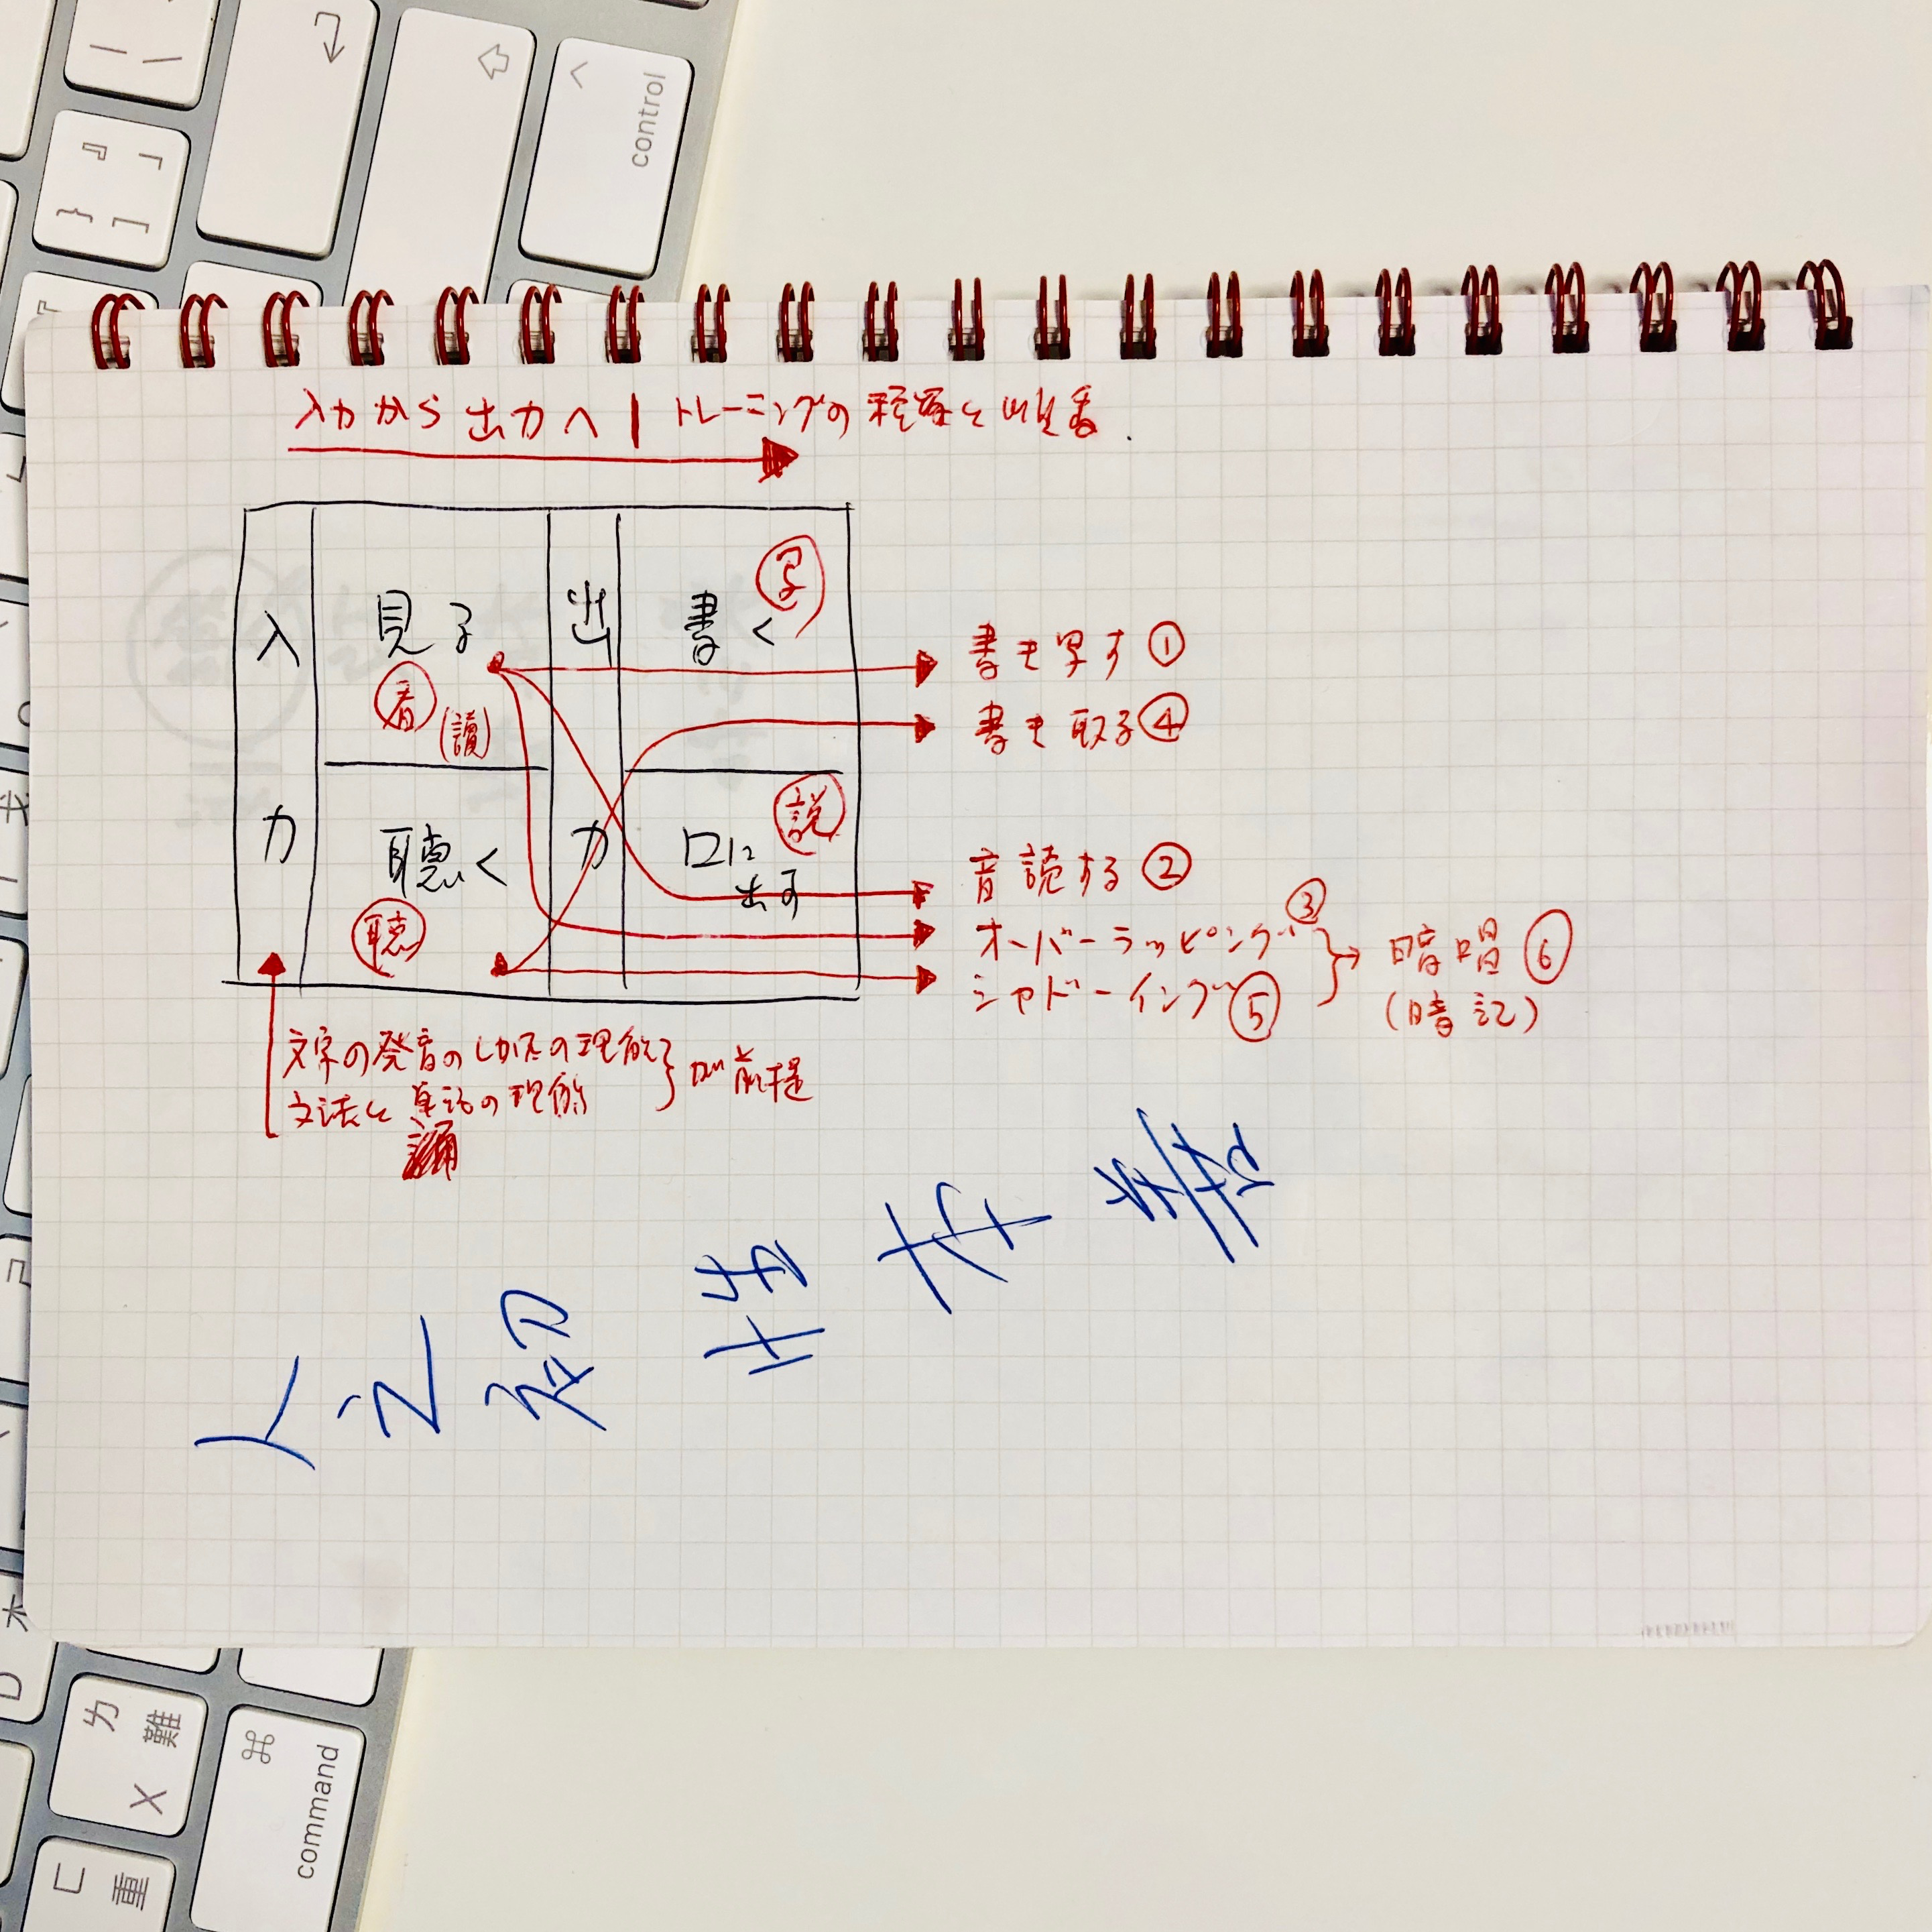 入力から出力へ | トレーニングの種類と順番.
入力
見る
看
(讀)
聴く
聴
出力
書く
写
口に
出す
説
書き写す ①
書き取る ④
音読する ②
オーバーラッピング ③
シャドーイング ⑤
暗唱 ⑥
(暗記)
文字の発音のしかたの理解
文法と単語の理解
が前提
人之初 性本善
control
command
⌘
ㄌ 難
X
ㄈ 重